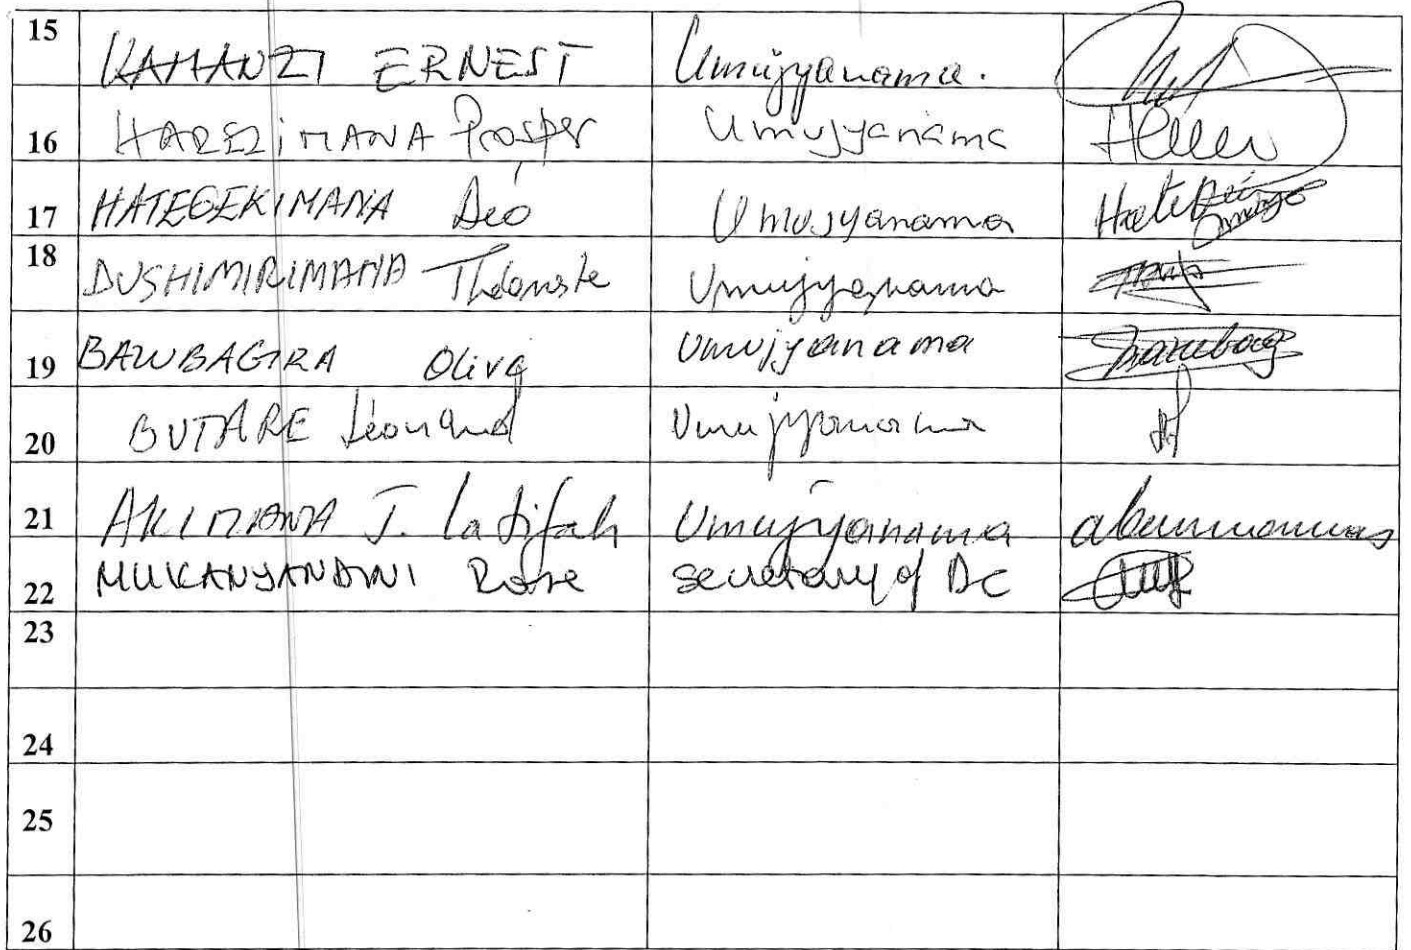 15 KAMANZI ERNEST Umujyanama.
16 HABEZIMANA Prosper Umujyanama
17 HATEGEKIMANA Déo Umujyanama
18 DUSHIMIRIMANA Umujyanama
19 BAWUBAGIRA Oliva Umujyanama
20 BUTARE Léonard Umujyanama
21 AKIMANA J. Latifah Umujyanama
22 MUKANYANDWI Rose secretary of DC
23
24
25
26